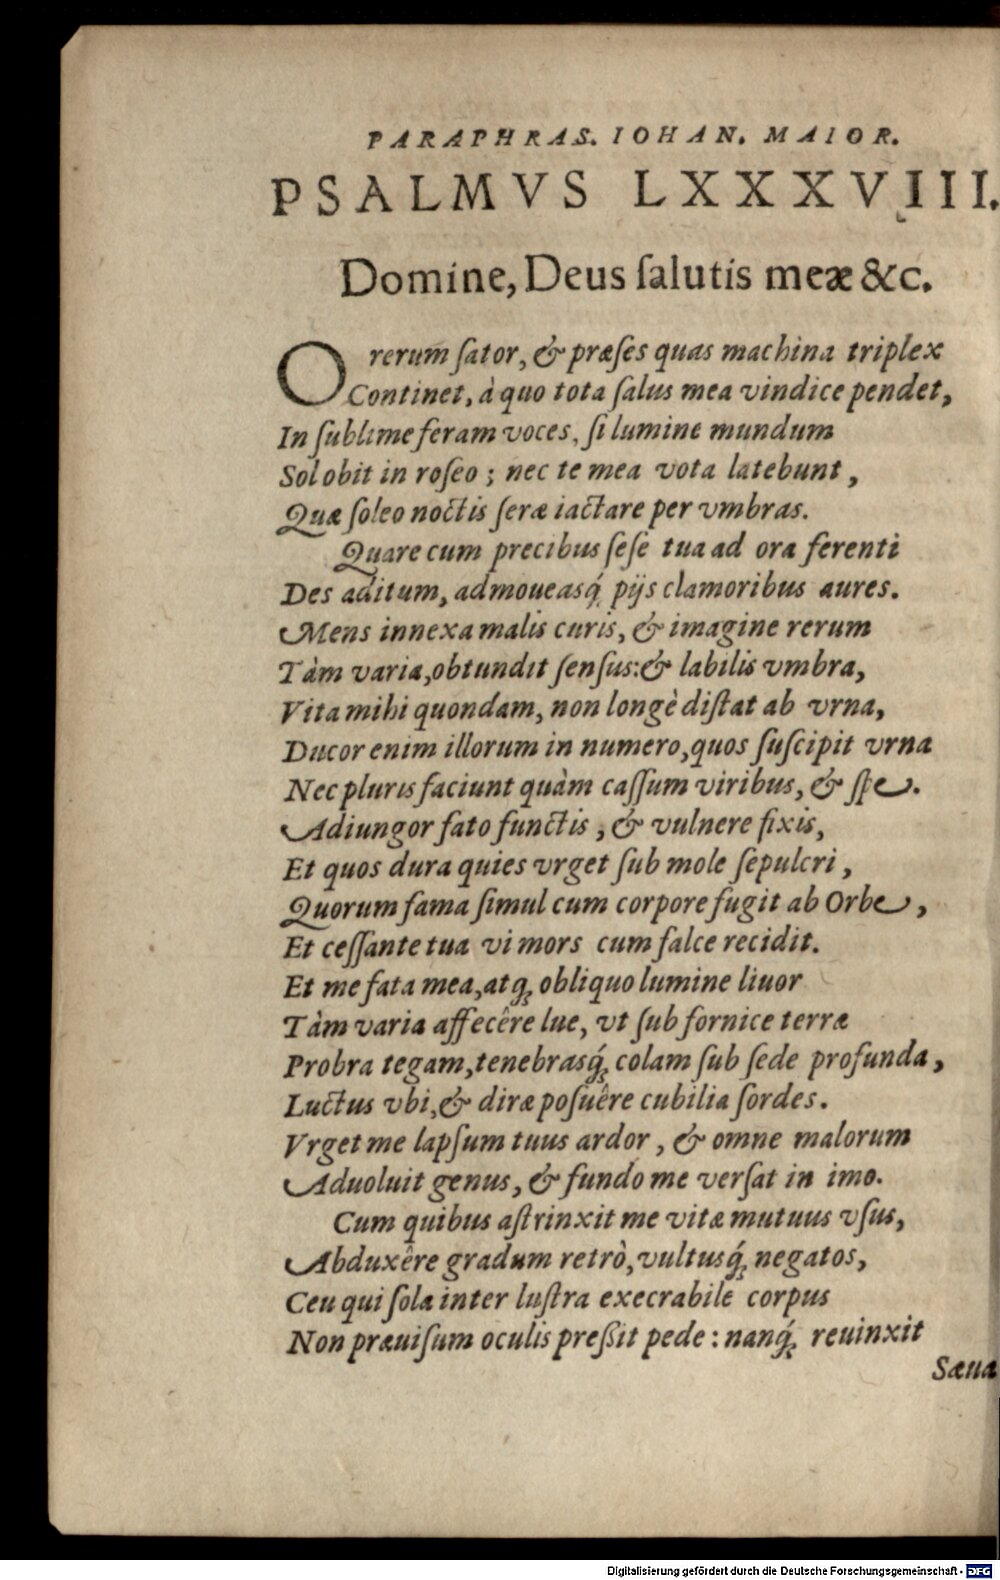 PARAPHRAS. IOHAN. MAIOR.
PSALMVS LXXXVIII.
Domine, Deus ſalutis meæ &c.
O rerum ſator, & præſes quas machina triplex
Continet, à quo tota ſalus mea vindice pendet,
In ſublime feram voces, ſi lumine mundum
Sol obit in roſeo; nec te mea vota latebunt,
Quæ ſoleo noctis ſeræ iactare per vmbras.
Quare cum precibus ſeſe tua ad ora ferenti
Des aditum, admoueasq́; pijs clamoribus aures.
Mens innexa malis curis, & imagine rerum
Tàm varia, obtundit ſenſus: & labilis vmbra,
Vita mihi quondam, non longè diſtat ab vrna,
Ducor enim illorum in numero, quos ſuſcipit vrna
Nec pluris faciunt quàm caſſum viribus, & ſpe.
Adiungor fato functis, & vulnere fixis,
Et quos dura quies vrget ſub mole ſepulcri,
Quorum fama ſimul cum corpore fugit ab Orbe,
Et ceſſante tua vi mors cum falce recidit.
Et me fata mea, atq; obliquo lumine liuor
Tàm varia affecêre lue, vt ſub fornice terræ
Probra tegam, tenebrasq́; colam ſub ſede profunda,
Luctus vbi, & diræ poſuêre cubilia ſordes.
Vrget me lapſum tuus ardor, & omne malorum
Aduoluit genus, & fundo me verſat in imo.
Cum quibus aſtrinxit me vitæ mutuus vſus,
Abduxêre gradum retrò, vultusq́; negatos,
Ceu qui ſola inter luſtra execrabile corpus
Non præuiſum oculis preßit pede: nanq́; reuinxit
Sæua
Digitalisierung gefördert durch die Deutsche Forschungsgemeinschaft - DFG